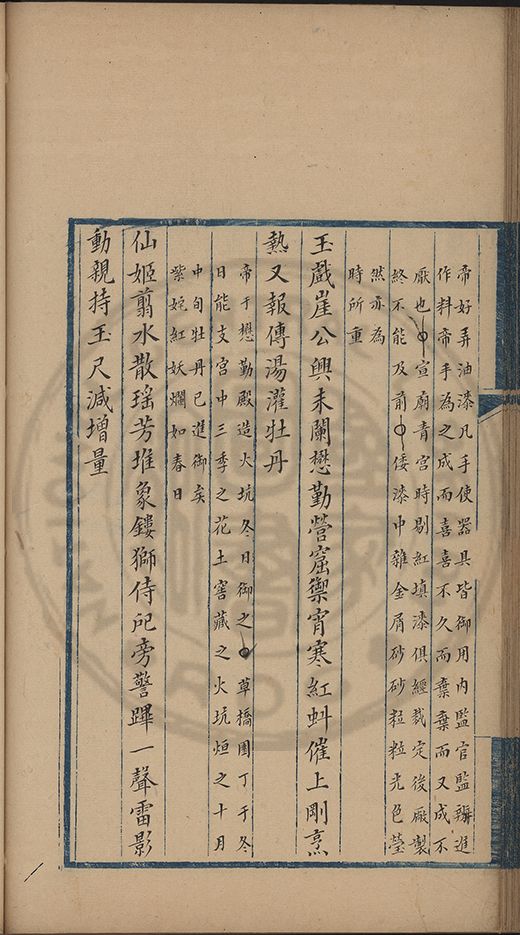 帝好弄油漆凡手使器具皆御用內監官監辦進
作料帝手為之成而喜喜不久而棄棄而又成不
厭也○宣廟青宮時剔紅填漆俱經裁定後厰製
終不能及前○倭漆中雜金屑砂砂粒粒光色瑩
然亦為
時所重
玉戲崖公興未闌懋勤營窟禦宵寒紅蚪催上剛烹
熱又報傳湯灌牡丹
帝于懋勤殿造火坑冬日御之○草橋圃丁于冬
日能支宮中三季之花土窖藏之火坑烜之十月
中旬牡丹已進御矣
紫姹紅妖爛如春日
仙姬翦水散瑶芳堆象鏤獅侍戺旁警蹕一聲雷影
動親持玉尺減增量